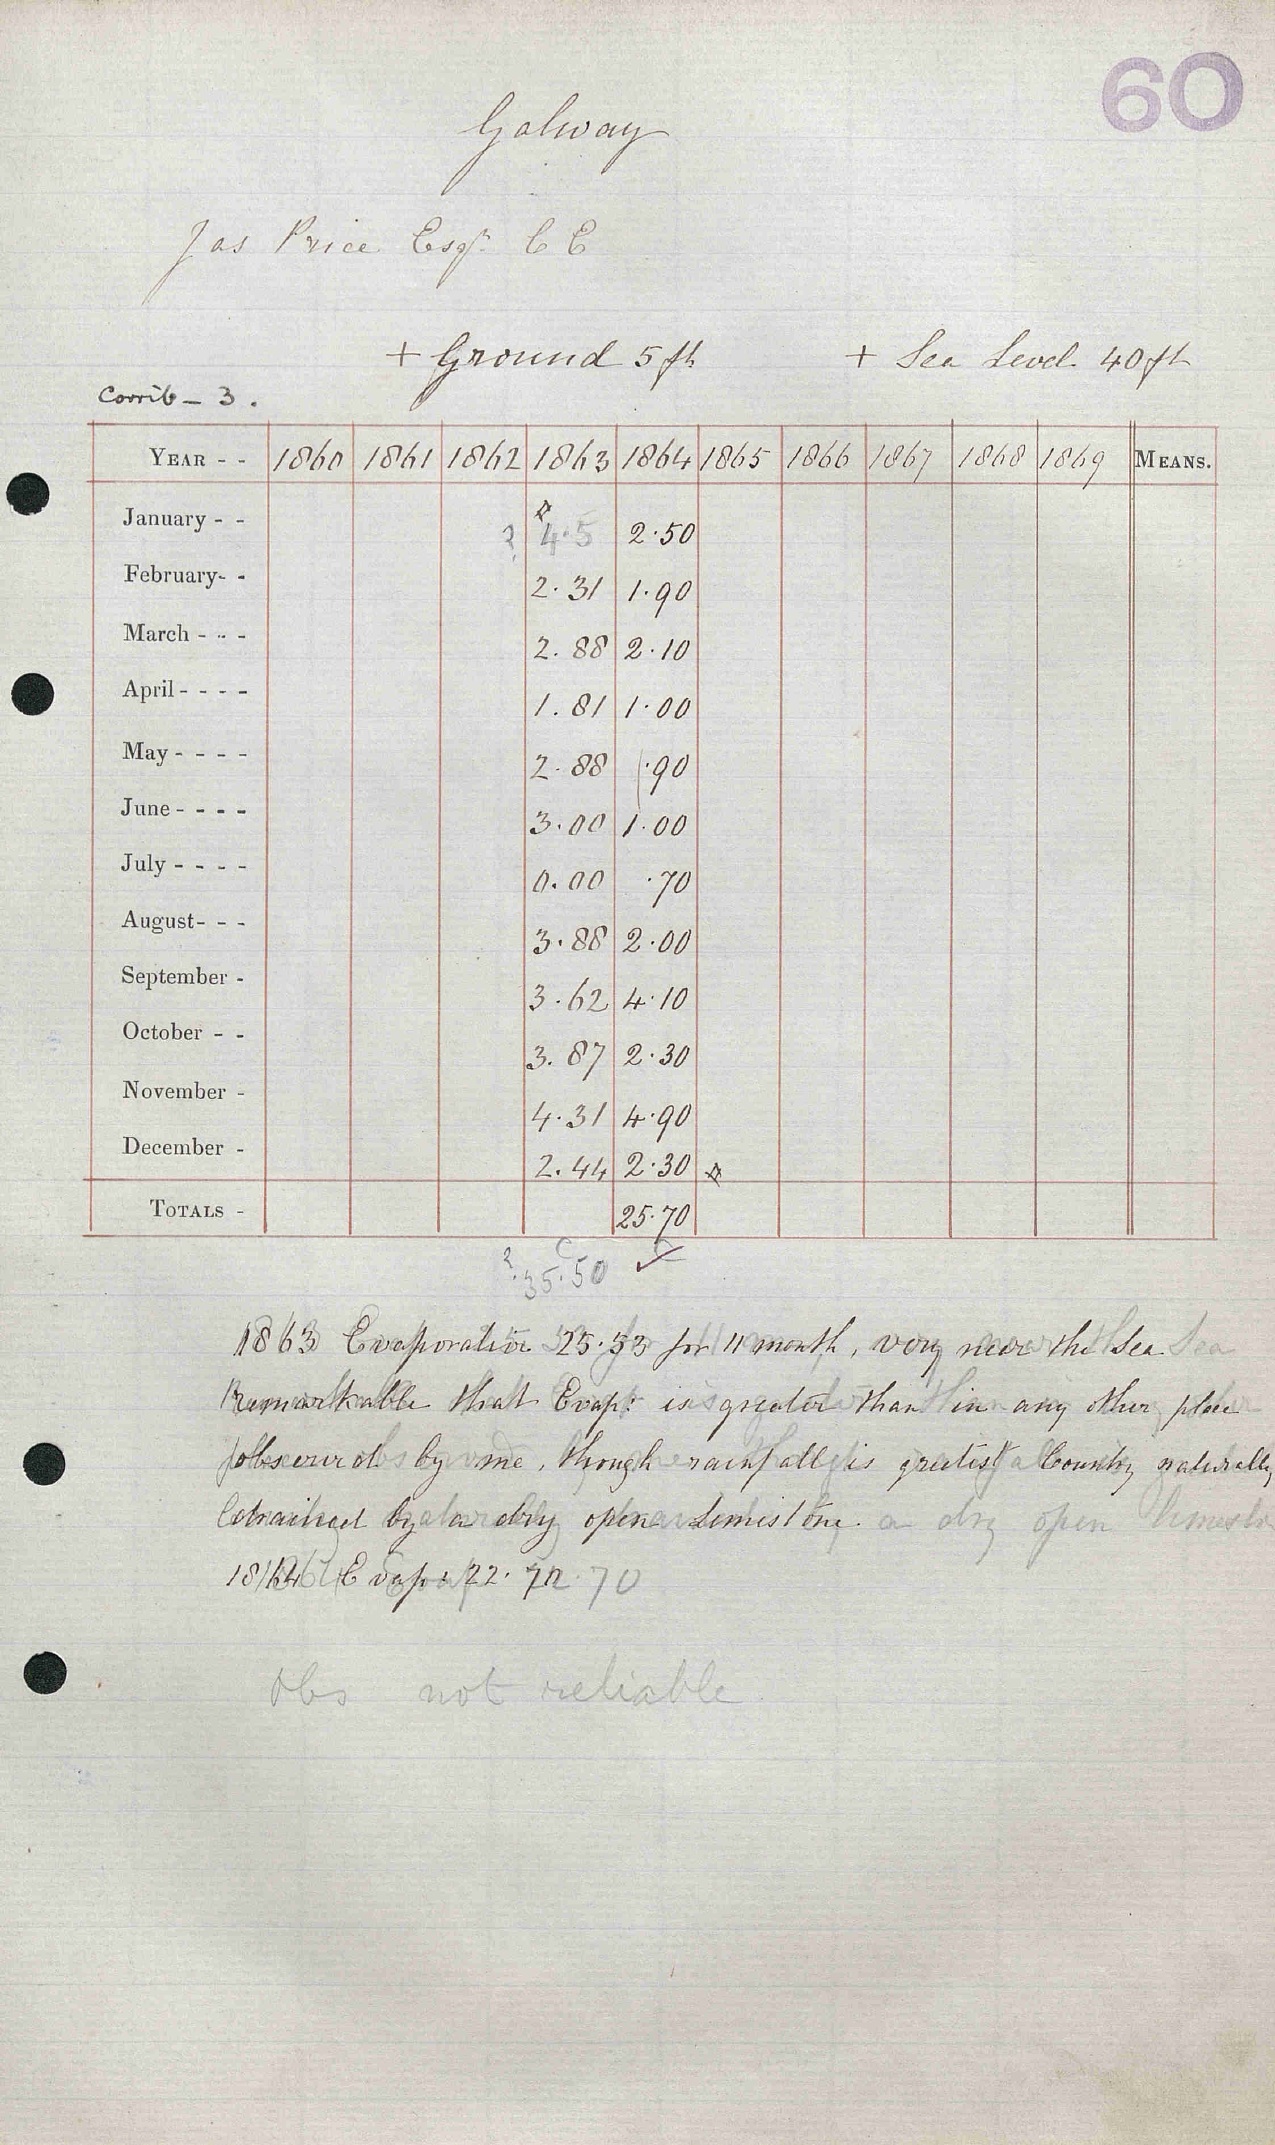 60
Galway
Jas Price Esqr C E
+ Ground 5 ft + Sea Level 40 ft
Corrib - 3.
YEAR - - 1860 1861 1862 1863 1864 1865 1866 1867 1868 1869 MEANS.
January - - ? 4.5 2.50
February- - 2.31 1.90
March - - - 2.88 2.10
April - - - - 1.81 1.00
May - - - - 2.88 .90
June - - - - 3.00 1.00
July - - - - 0.00 .70
August- - - 3.88 2.00
September - 3.62 4.10
October - - 3.87 2.30
November - 4.31 4.90
December - 2.44 2.30
TOTALS - 25.70
? 35.50
1863 Evaporation 25.53 for 11 month, very near the Sea
Remarkable that Evap: is greater than in any other place
observed by me, though rainfall is greatest Country naturally
drained by a dry open Limestone
1864 Evap: 22.70
Obs not reliable